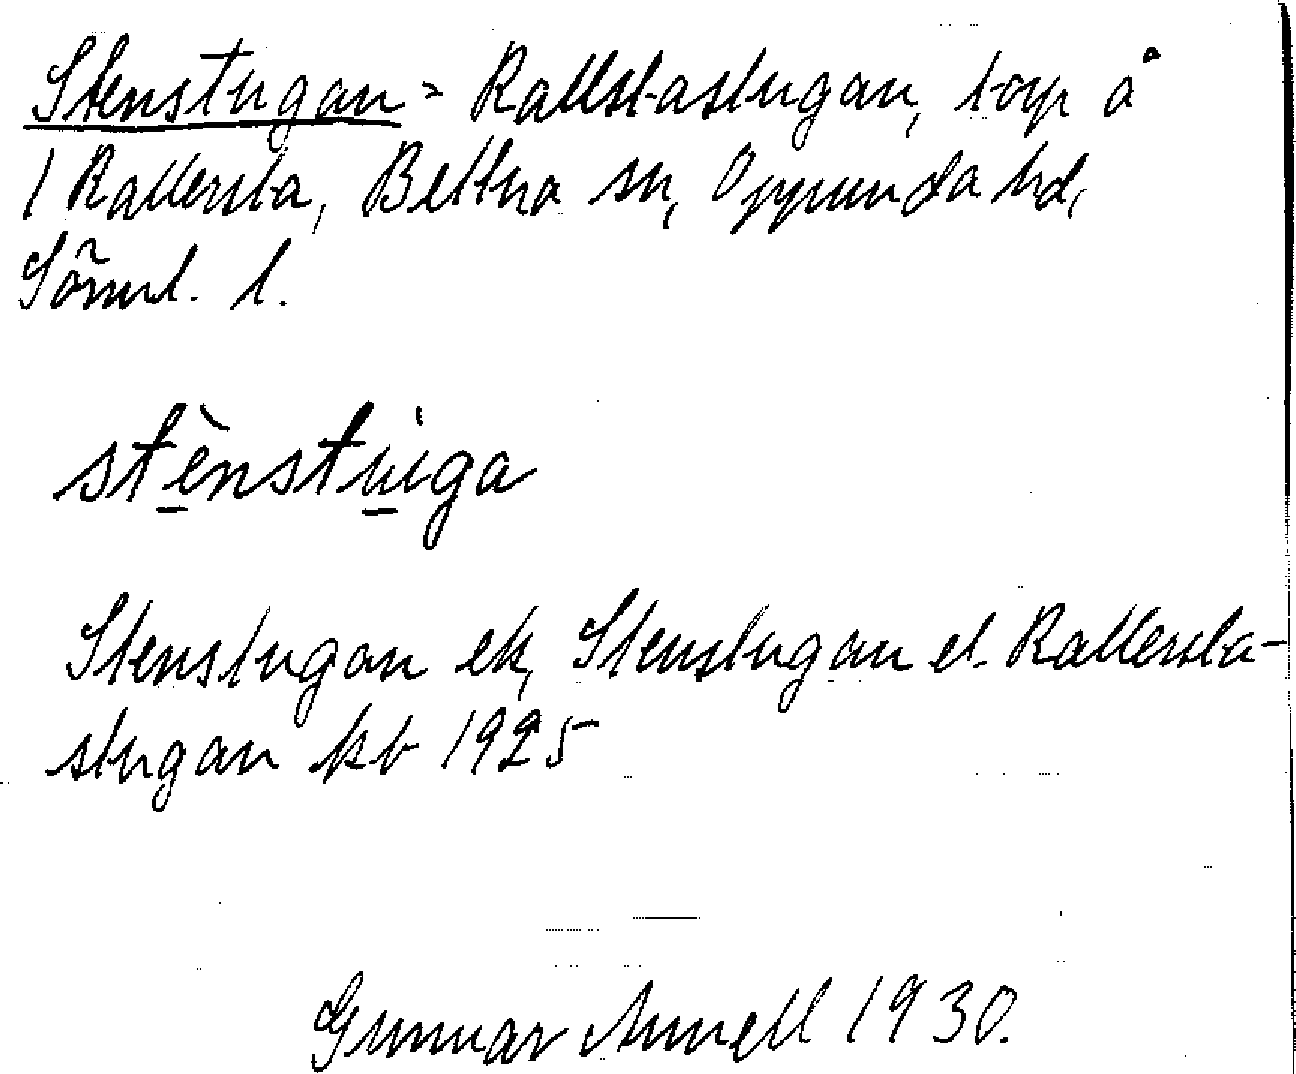 Stenstugan = Rallstastugan, torp å
1 Rallersta, Bettna sn, Oppunda hd,
Söml. l.
stènstùiga
Stenstugan ek, Stenstugan el. Rallersta-
stugan kb 1925
Gunnar Annell 1930.